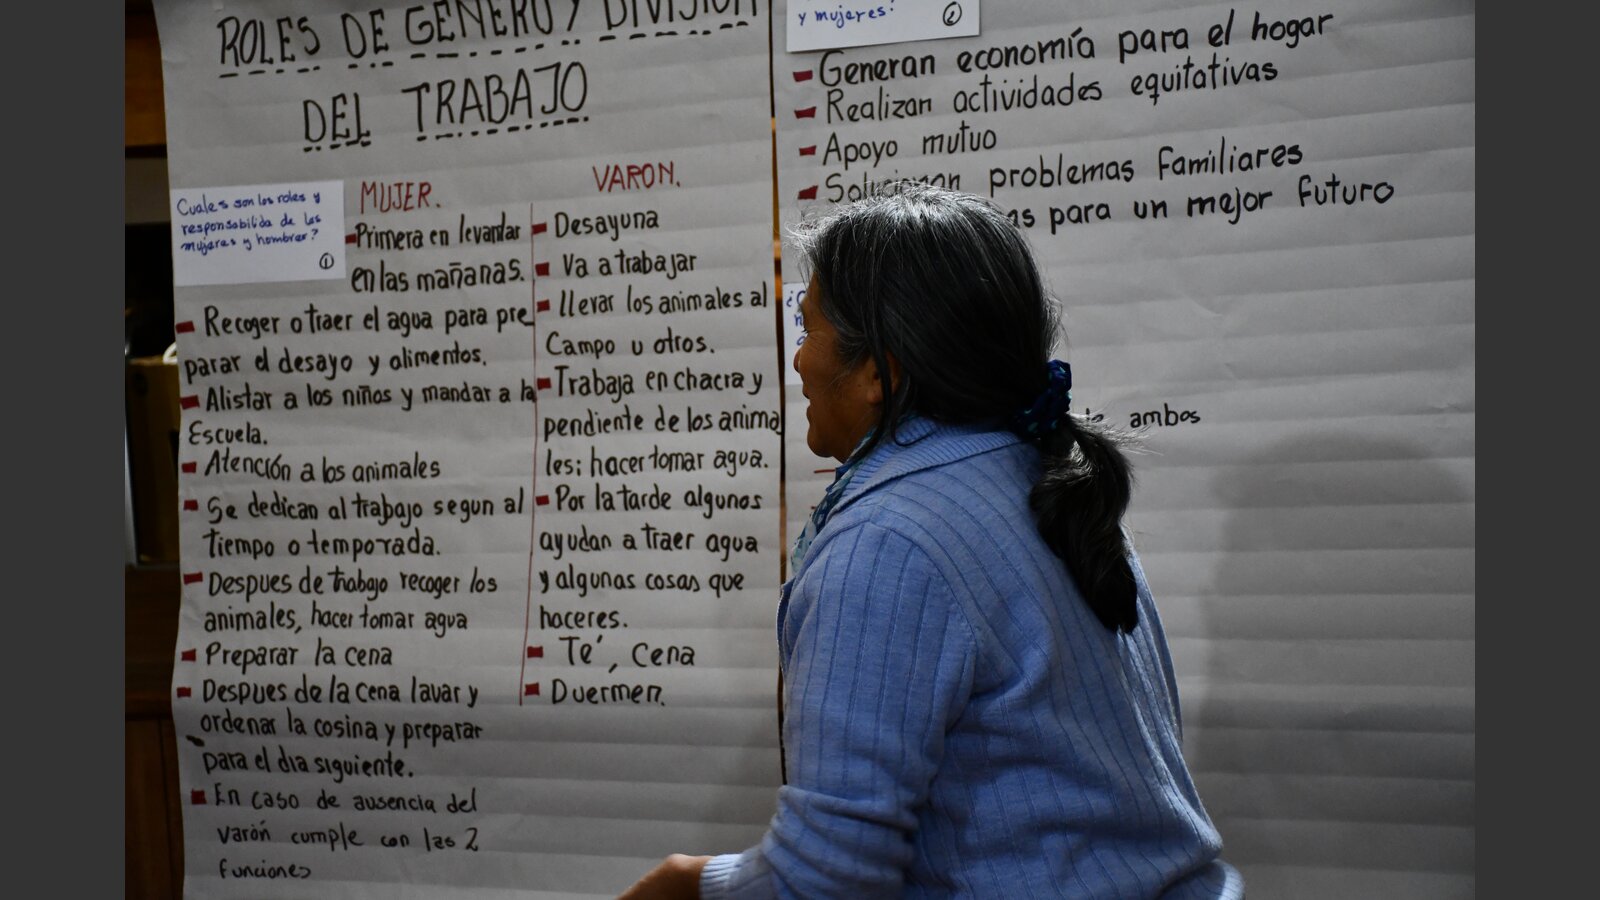 ROLES DE GENERO Y DIVISION
DEL TRABAJO
Cuales son los roles y
responsabilida de las
mujeres y hombres?
1
MUJER.
Primera en levantar
en las mañanas.
Recoger o traer el agua para pre
parar el desayo y alimentos.
Alistar a los niños y mandar a la
Escuela.
Atención a los animales
Se dedican al trabajo segun al
tiempo o temporada.
Despues de trabajo recoger los
animales, hacer tomar agua
Preparar la cena
Despues de la cena lavar y
ordenar la cosina y preparar
para el dia siguiente.
En caso de ausencia del
varón cumple con las 2
funciones
VARON.
Desayuna
Va a trabajar
llevar los animales al
Campo u otros.
Trabaja en chacra y
pendiente de los anima
les; hacer tomar agua.
Por la tarde algunos
ayudan a traer agua
y algunas cosas que
haceres.
Té, Cena
Duermen.
y mujeres?
2
Generan economía para el hogar
Realizan actividades equitativas
Apoyo mutuo
Solucionan problemas familiares
para un mejor futuro
ambos